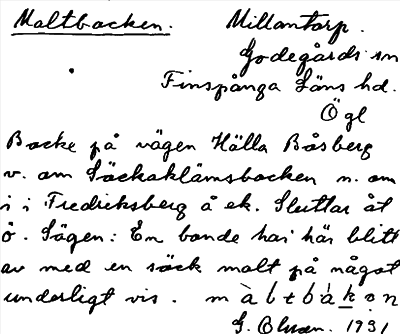 Maltbacken. Millantorp.
Godegårds sn
Finspånga Läns hd.
Ögl
Backe på vägen Hälla Båsberg
v. om Säckaklämsbacken n. om
i i Fredriksberg å ek. Sluttar åt
ö. Sägen: En bonde har här blitt
av med en säck malt på något
underligt vis. màltbákon
G. Olson. 1931